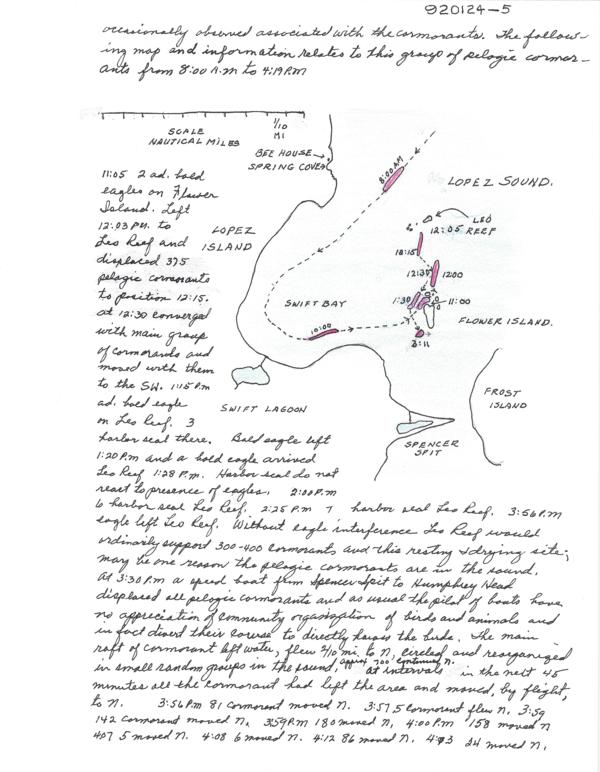 920124-5
occasionally observed associated with the cormorants. The follow-
ing map and information relates to this group of pelagic cormor-
ants from 8:00 A.M to 4:19 P.M
SCALE
NAUTICAL MILES
1/10
MI
BEE HOUSE
SPRING COVE
8:00 AM
LOPEZ SOUND.
LEO
REEF
12:05
12:15
12:30
1200
1:30
11:00
FLOWER ISLAND.
3:11
LOPEZ
ISLAND
SWIFT BAY
10:00
SWIFT LAGOON
FROST
ISLAND
SPENCER
SPIT
11:05 2 ad. bald
eagles on Flower
Island. Left
12:03 P.M. to
Leo Reef and
displaced 375
pelagic cormorants
to position 12:15.
at 12:30 converged
with main group
of cormorants and
moved with them
to the SW. 1:15 P.m
ad. bald eagle
on Leo Reef. 3
harbor seal there. Bald eagle left
1:20 P.m and a bald eagle arrived
Leo Reef 1:28 P.m. Harbor seal do not
react to presence of eagles. 2:00 P.m
6 harbor seal Leo Reef. 2:25 P.m 7 harbor seal Leo Reef. 3:56 P.m
eagle left Leo Reef. Without eagle interference Leo Reef would
ordinarily support 300-400 cormorants and this resting & drying site;
may be one reason the pelagic cormorants are in the sound.
At 3:30 P.m a speed boat from Spencer Spit to Humphrey Head
displaced all pelagic cormorants and as usual the pilot of boats have
no appreciation of community organization of birds and animals and
in fact divert their course to directly harass the birds. The main
raft of cormorant left water, flew 2/10 mi. to N, circled and reorganized
in small random groups in the sound, approx 700 continued N. at intervals in the next 45
minutes all the cormorant had left the area and moved, by flight,
to N. 3:56 P.m 81 cormorant moved N. 3:57 5 cormorant flew N. 3:59
142 cormorant moved N. 3:59 P.m 180 moved N, 4:00 P.m 158 moved N
407 5 moved N. 4:08 6 moved N. 4:12 86 moved N. 4:13 24 moved N.